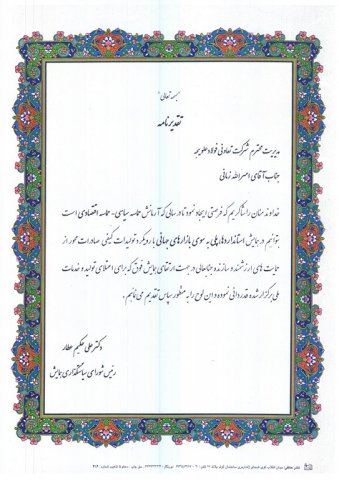 بسمه تعالی
تقدیرنامه
مدیریت محترم شرکت تعاونی فولاد علویجه
جناب آقای امراله زمانی
خداوند منان را شاکریم که فرصتی ایجاد نمود تا در سالی که آرمانش حماسه سیاسی - حماسه اقتصادی است
بتوانیم در همایش استانداردها، پلی به سوی بازارهای جهانی با رویکرد تولیدات کیفی صادرات محور از
حمایت های ارزشمند و سازنده جنابعالی در جهت ارتقای همایش فوق که برای اعتلای تولید و خدمات
ملی برگزار شده قدردانی نموده و این لوح را به منظور سپاس تقدیم می نمائیم.
دکتر علی حکیم عطار
رئیس شورای سیاستگذاری همایش